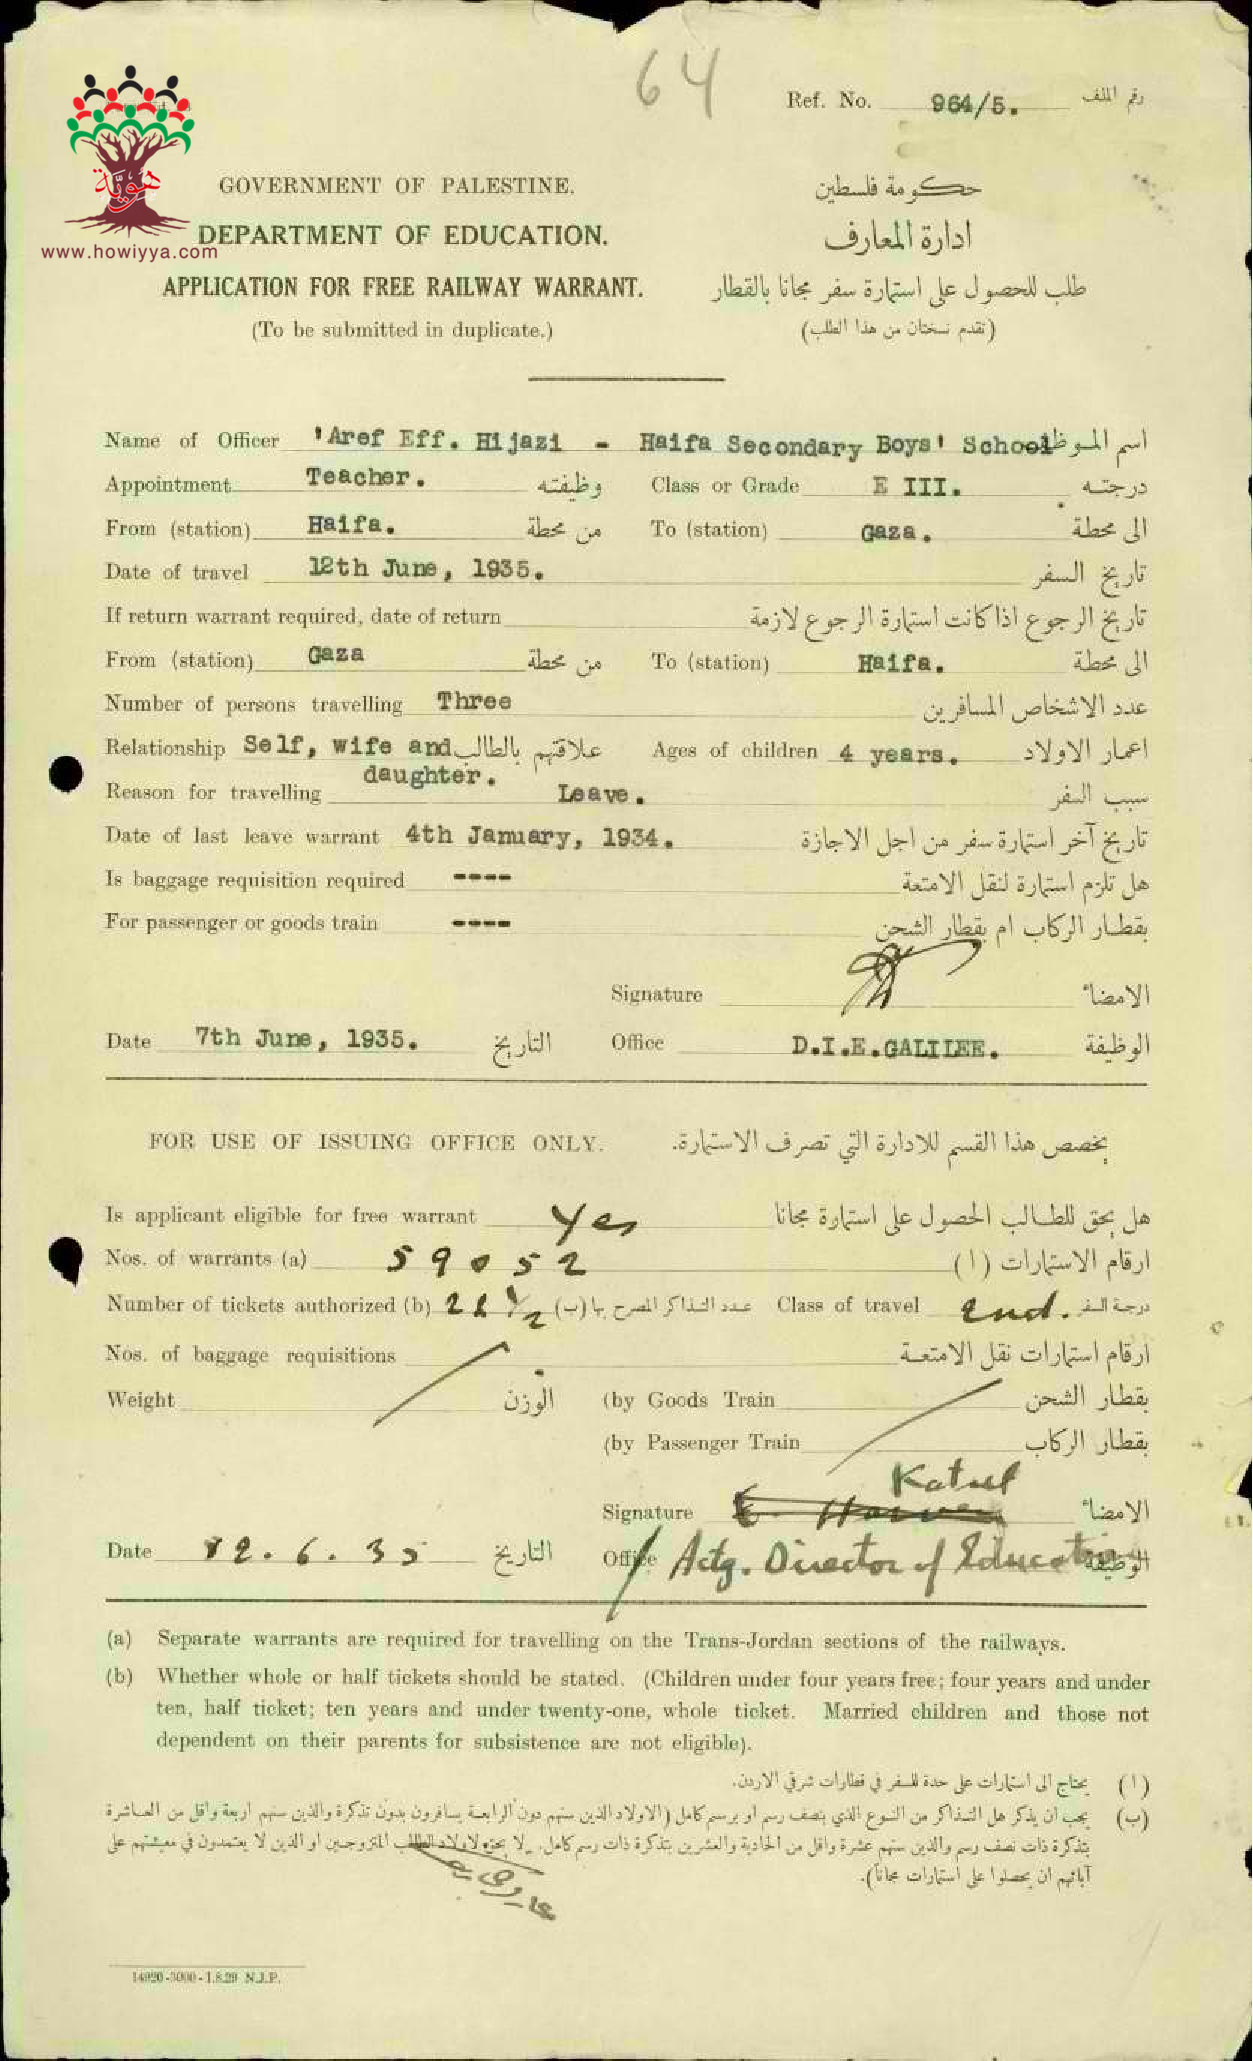 64
Ref. No. 964/5. رقم الملف
هويّة
www.howiyya.com
GOVERNMENT OF PALESTINE. حكومة فلسطين
DEPARTMENT OF EDUCATION. ادارة المعارف
APPLICATION FOR FREE RAILWAY WARRANT. طلب للحصول على استمارة سفر مجانا بالقطار
(To be submitted in duplicate.) (تقدم نسختان من هذا الطلب)
Name of Officer 'Aref Eff. Hijazi - Haifa Secondary Boys' School اسم الموظف
Appointment Teacher. وظيفته Class or Grade E III. درجته
From (station) Haifa. من محطة To (station) Gaza. الى محطة
Date of travel 12th June, 1935. تاريخ السفر
If return warrant required, date of return تاريخ الرجوع اذا كانت استمارة الرجوع لازمة
From (station) Gaza من محطة To (station) Haifa. الى محطة
Number of persons travelling Three عدد الاشخاص المسافرين
Relationship Self, wife and علاقتهم بالطالب Ages of children 4 years. اعمار الاولاد
daughter.
Reason for travelling Leave. سبب السفر
Date of last leave warrant 4th January, 1934. تاريخ آخر استمارة سفر من اجل الاجازة
Is baggage requisition required ---- هل تلزم استمارة لنقل الامتعة
For passenger or goods train ---- بقطار الركاب ام بقطار الشحن
Signature الامضاء
Date 7th June, 1935. التاريخ Office D.I.E.GALILEE. الوظيفة
FOR USE OF ISSUING OFFICE ONLY. يخصص هذا القسم للادارة التي تصرف الاستمارة.
Is applicant eligible for free warrant Yes هل يحق للطالب الحصول على استمارة مجانا
Nos. of warrants (a) 59052 ارقام الاستمارات (ا)
Number of tickets authorized (b) 2 1/2 عدد التذاكر المصرح بها (ب) Class of travel 2nd. درجة السفر
Nos. of baggage requisitions ارقام استمارات نقل الامتعة
Weight الوزن (by Goods Train بقطار الشحن
(by Passenger Train بقطار الركاب
Signature الامضاء
Date 12.6.35 التاريخ Office / Actg. Director of Education الوظيفة
(a) Separate warrants are required for travelling on the Trans-Jordan sections of the railways.
(b) Whether whole or half tickets should be stated. (Children under four years free; four years and under
ten, half ticket; ten years and under twenty-one, whole ticket. Married children and those not
dependent on their parents for subsistence are not eligible).
(ا) يحتاج الى استمارات على حدة للسفر في قطارات شرقي الاردن.
(ب) يجب ان يذكر هل التذاكر من النوع الذي بنصف رسم او برسم كامل (الاولاد الذين سنهم دون الرابعة يسافرون بدون تذكرة والذين سنهم اربعة واقل من العاشرة
بتذكرة ذات نصف رسم والذين سنهم عشرة واقل من الحادية والعشرين بتذكرة ذات رسم كامل. لا يحق لاولاد الطالب المتزوجين او الذين لا يعتمدون في معيشتهم على
آبائهم ان يحصلوا على استمارات مجاناً).
14920-3000-1.8.29 N.J.P.